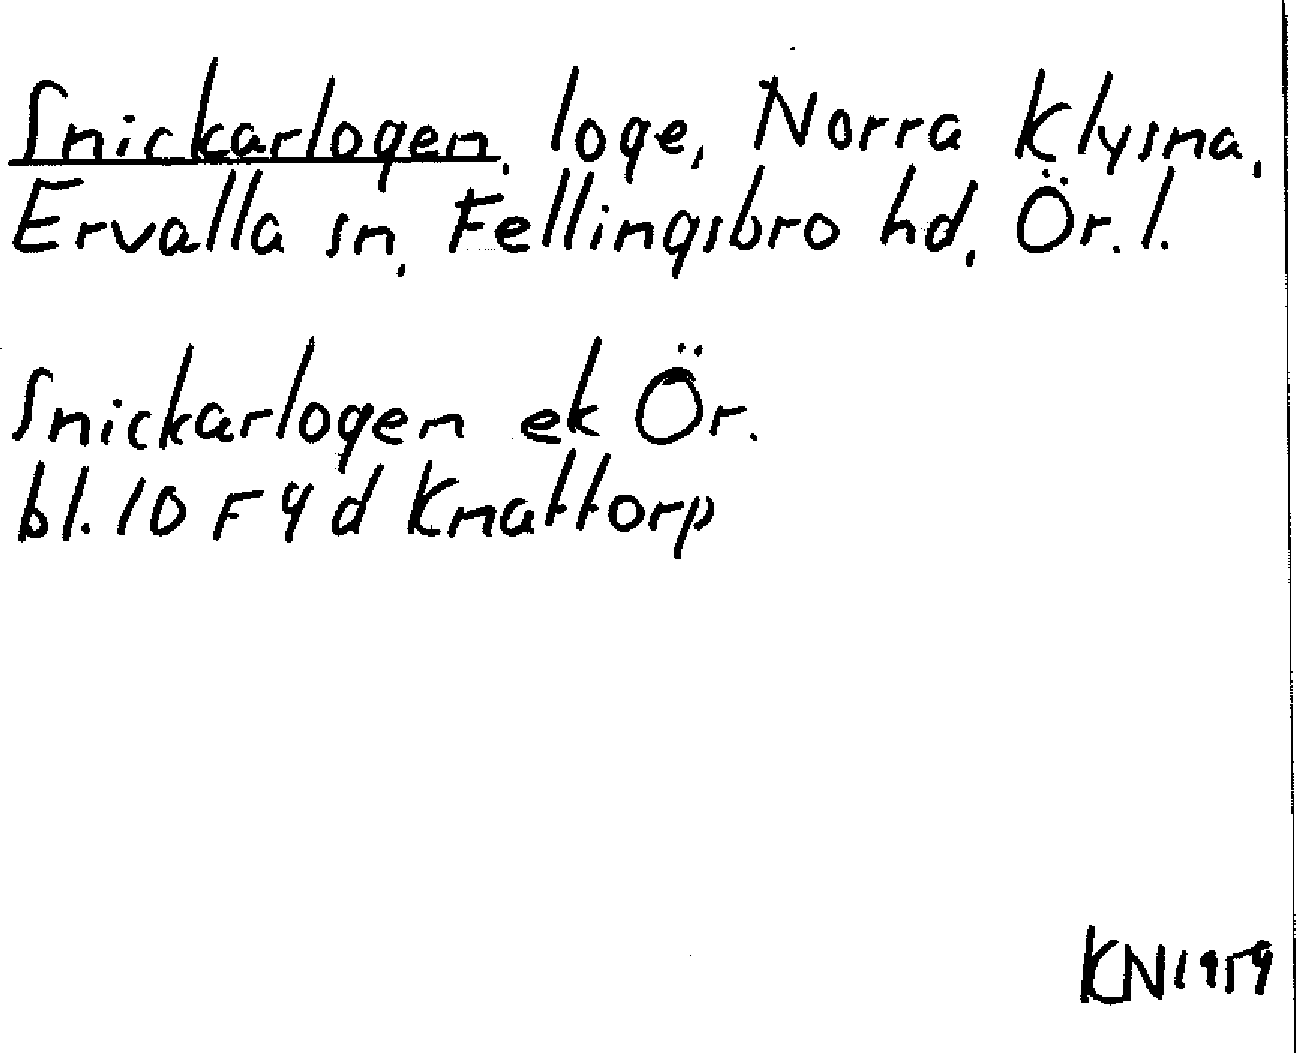 Snickarlogen, loge, Norra Klysna,
Ervalla sn, Fellingsbro hd, Ör. l.
Snickarlogen ek Ör.
bl. 10 F 4 d Knattorp
KN 1959